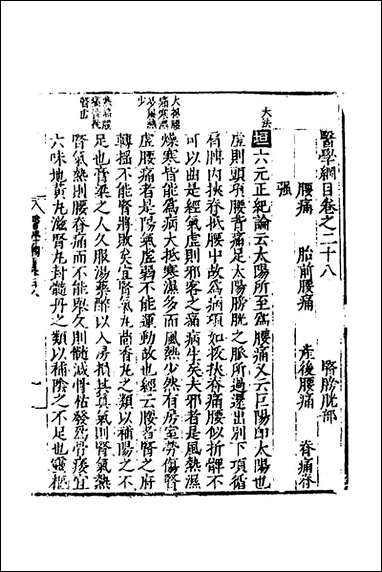 醫學綱目卷之二十八
腎膀胱部
腰痛　胎前腰痛　産後腰痛　脊痛脊
强
大法
垣 六元正紀論云太陽所至爲腰痛又云巨陽即太陽也
虚則頭項腰背痛足太陽膀胱之脉所過還出別下項循
肩膊内挾脊抵腰中故爲病項如拔挾脊痛腰似折髀不
可以曲是經氣虚則邪客之痛病生矣夫邪者是風熱濕
燥寒皆能爲病大抵寒濕多而風熱少然有房室勞傷腎
虚腰痛者是陽氣虚弱不能運動故也經云腰者腎之府
轉揺不能腎將敗矣宜腎氣丸茴香丸之類以補陽之不
足也膏粱之人久服湯藥醉以入房損其真氣則腎氣熱
腎氣熱則腰脊痛而不能舉久則髓減骨枯發爲骨痿宜
六味地黄丸滋腎丸封髓丹之類以補陰之不足也靈樞
大抵腰
痛寒濕
多風熱
少